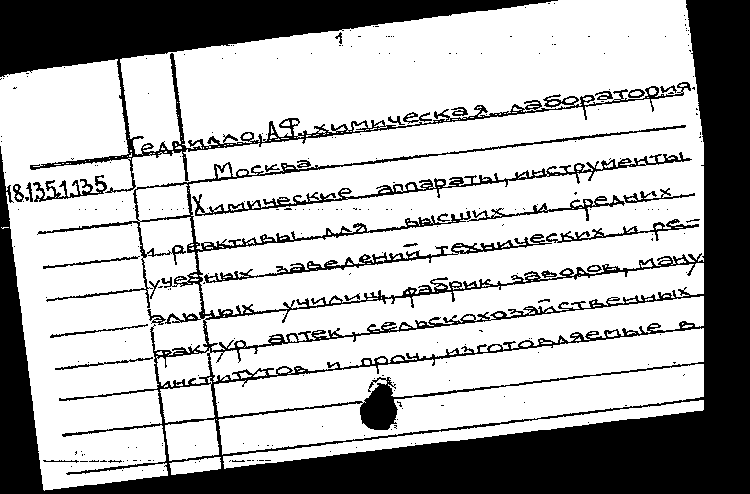 1
Гедвилло, А.Ф., химическая лаборатория.
Москва.
18.135.1.135.
Химические аппараты, инструменты
и реактивы для высших и средних
учебных заведений, технических и ре-
альных училищ, фабрик, заводов, ману-
фактур, аптек, сельскохозяйственных
институтов и проч., изготовляемые в